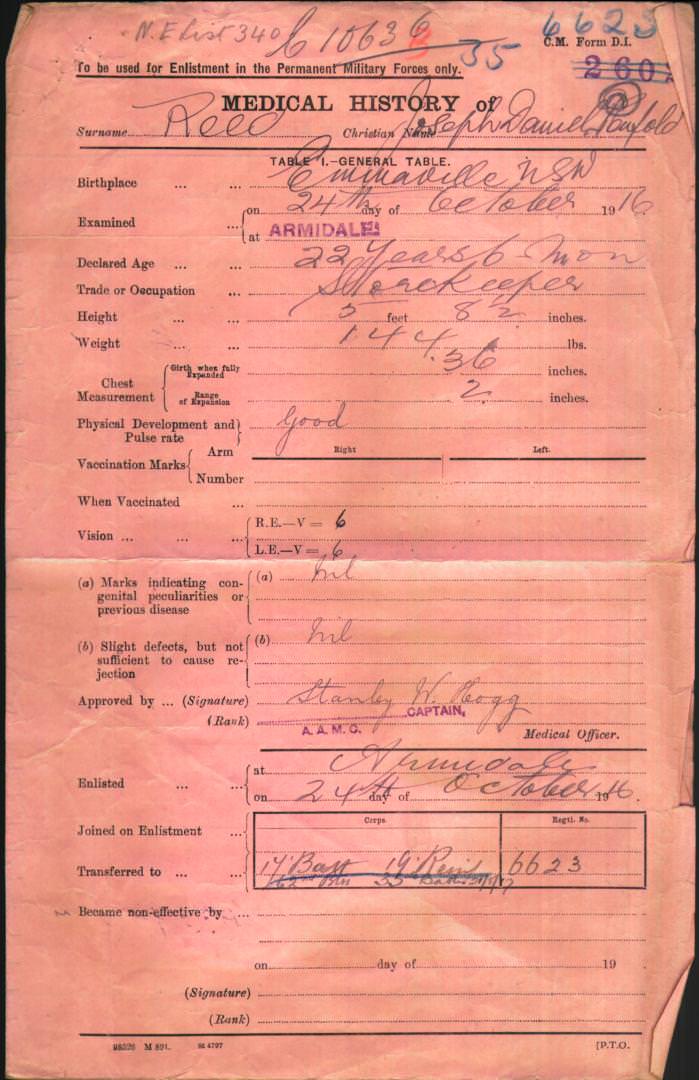 N.E List 340 C 10636 35 6623
C.M. Form D.I.
To be used for Enlistment in the Permanent Military Forces only.
260
MEDICAL HISTORY of
Surname Reed Christian Name Joseph Daniel Penfold
TABLE I.—GENERAL TABLE.
Birthplace ... ... Emmaville NSW
Examined ... on 24th day of October 1916
at ARMIDALE
Declared Age ... ... 22 Years 6 Mon
Trade or Occupation ... Storekeeper
Height ... ... 5 feet 8½ inches.
Weight ... ... 144 lbs.
Chest Measurement Girth when fully Expanded 36 inches.
Range of Expansion 2 inches.
Physical Development and Pulse rate Good
Vaccination Marks Arm Right Left.
Number
When Vaccinated ...
Vision ... ... R.E.—V = 6
L.E.—V = 6
(a) Marks indicating con- (a) Nil
genital peculiarities or
previous disease
(b) Slight defects, but not (b) Nil
sufficient to cause re-
jection
Approved by ... (Signature) Stanley W. Hogg
(Rank) CAPTAIN,
A.A.M.C. Medical Officer.
Enlisted ... ... at Armidale
on 24th day of October 1916.
Corps. Regtl. No.
Joined on Enlistment ...
Transferred to ... ... 17 Batt 19 Rein 6623
35
Became non-effective by ...
on day of 19
(Signature)
(Rank)
98326 M 891. St 4797 [P.T.O.